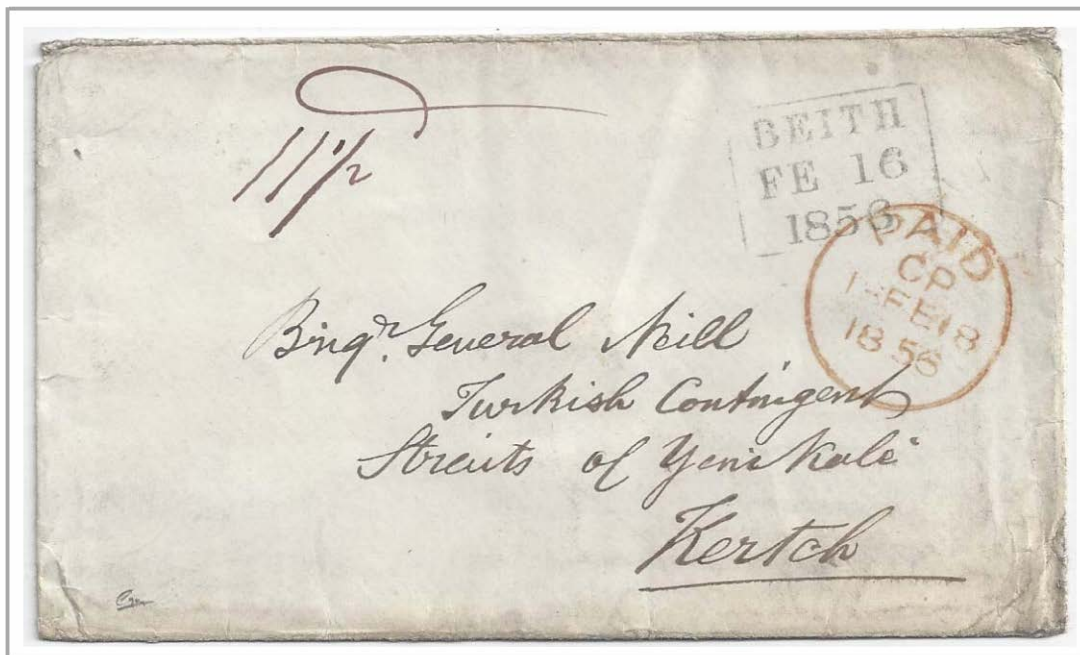 11 1/2
BEITH
FE 16
1856
PAID
CP
FE 18
1856
Brigr. General Neill
Turkish Contingent
Straits of Yenikale
Kertch